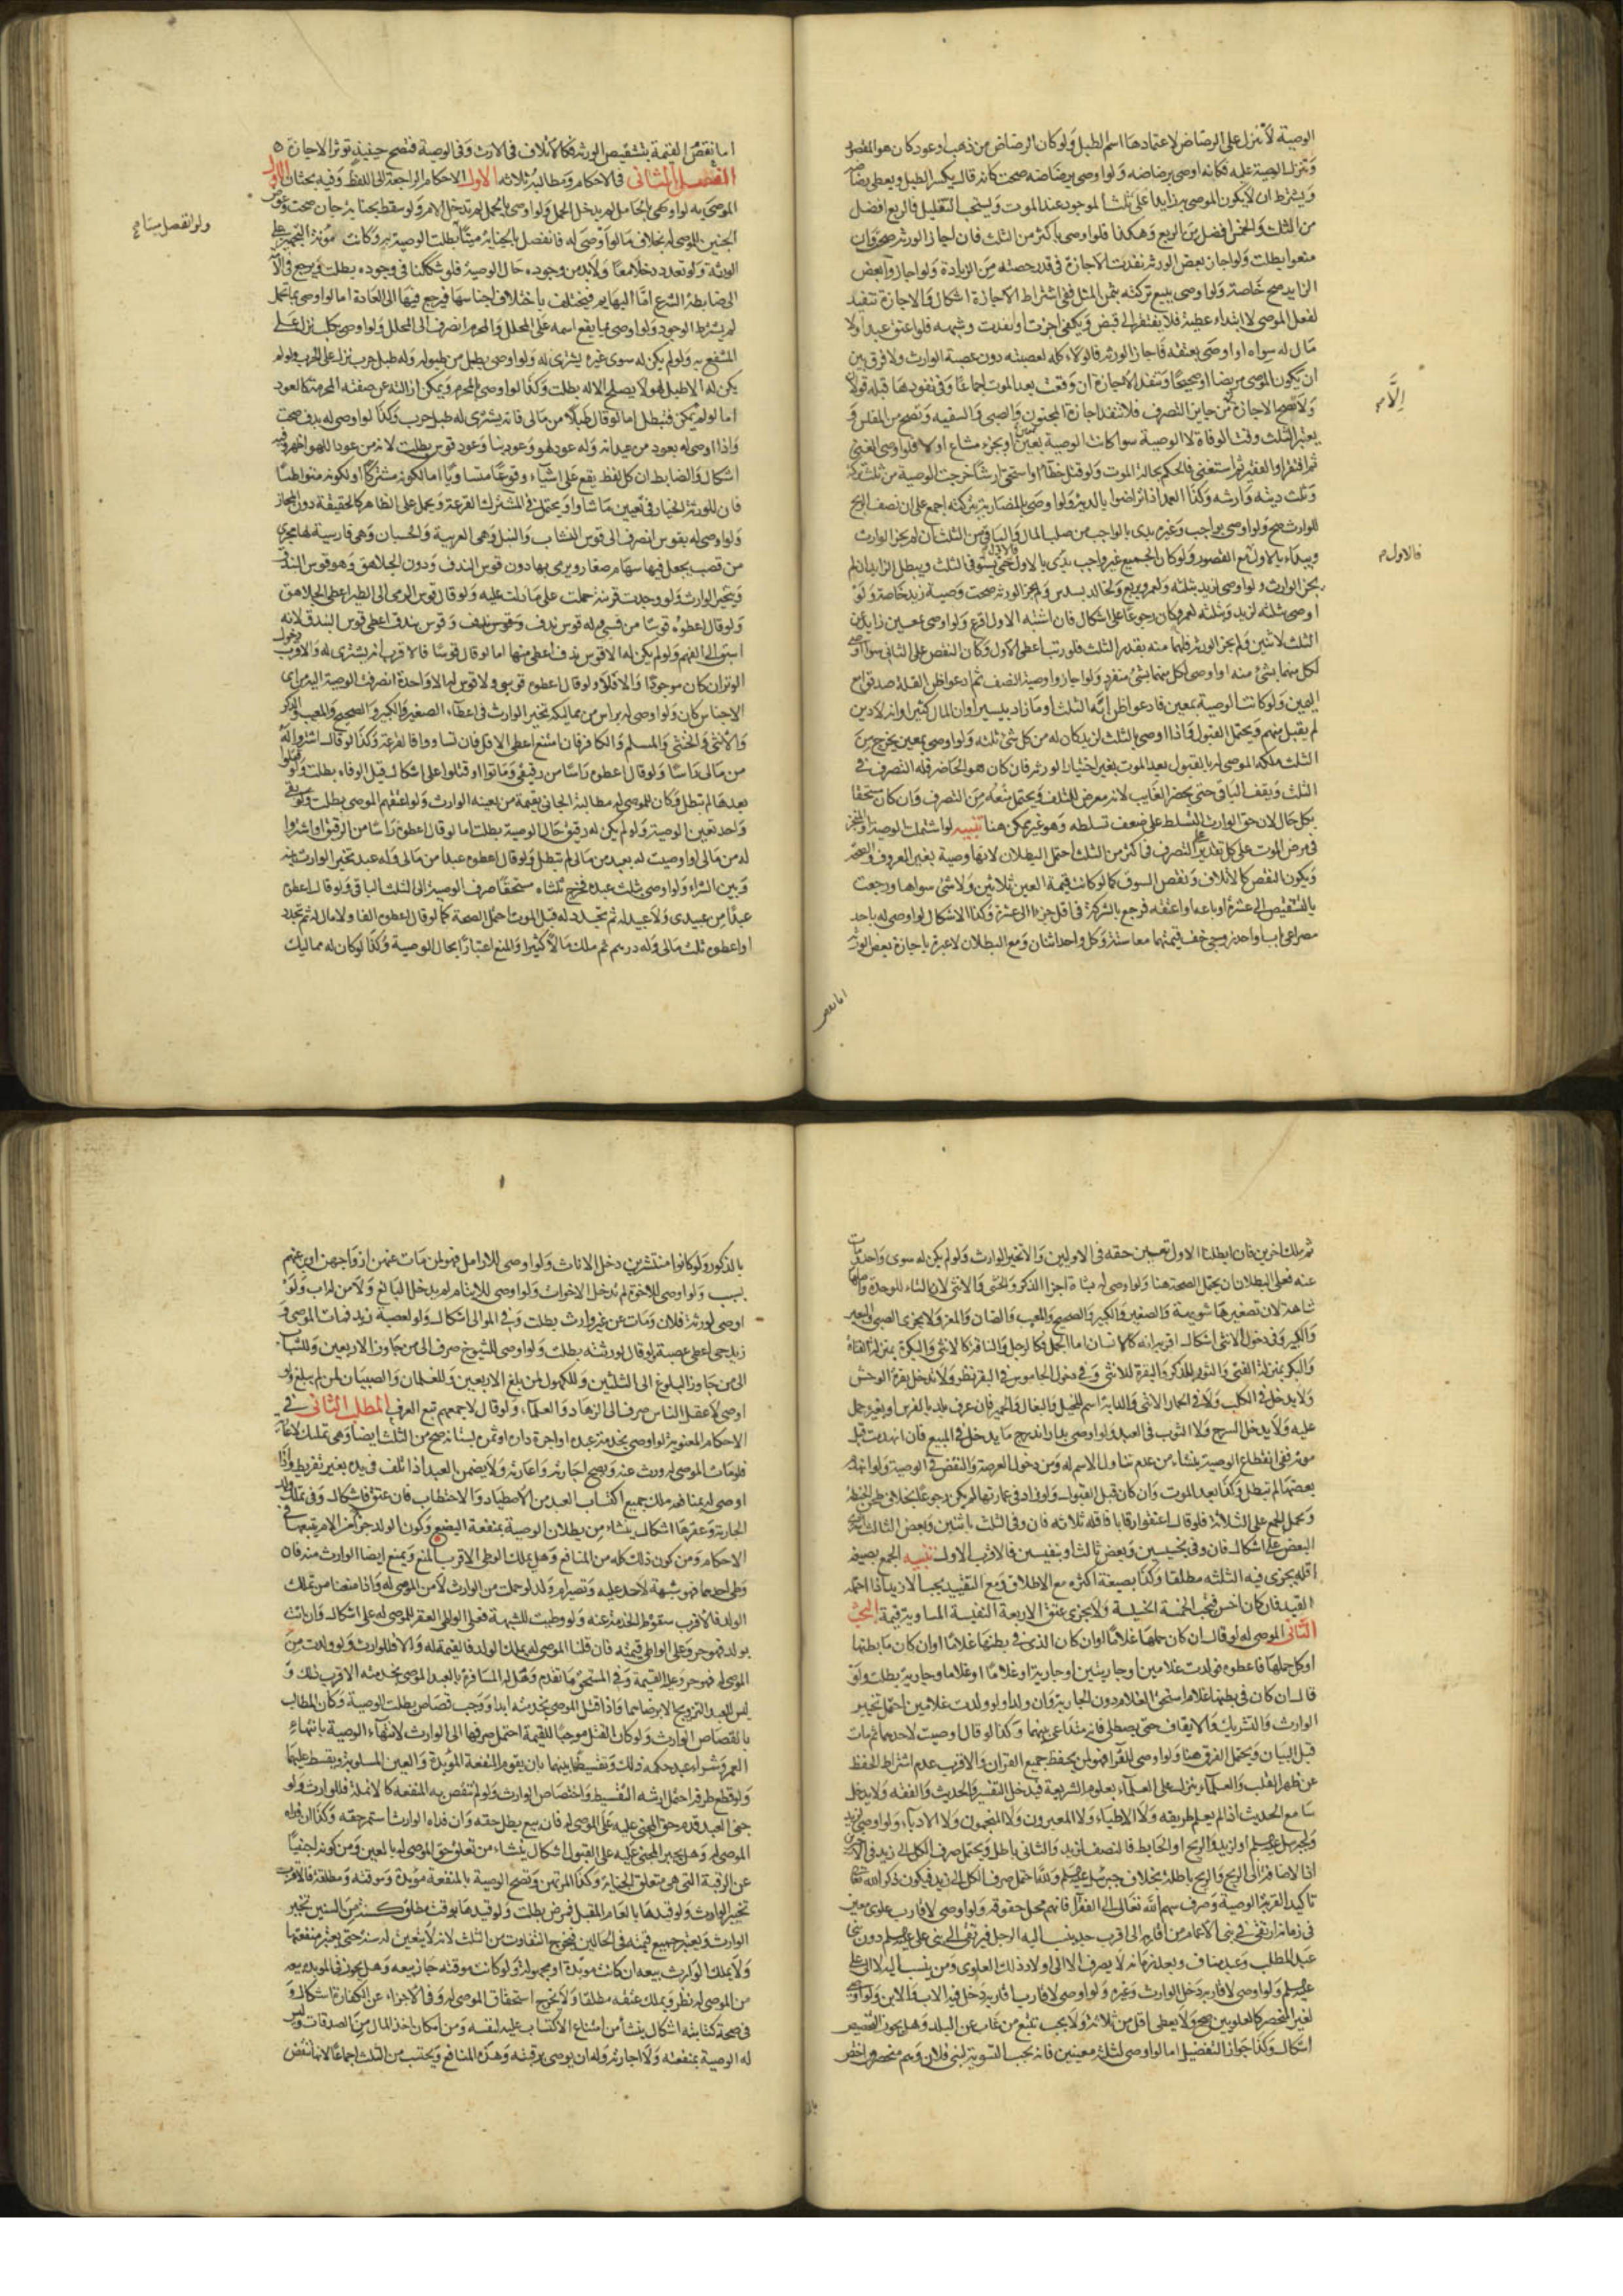 الوصية لا تنزل على الرضاض لاعتمادها اسم الطبل ولو كان الرضاض من ذهب او عود كان هو المقصود
وتنزل الوصية عليه فكانه اوصى برضاضه ولو اوصى برضاضه صحت كانه قال يكسر الطبل ويعطى رضاضه
ويشترط ان لا يكون الموصى به زايدا على ثلث الموجود عند الموت ويستحب التقليل فالربع افضل
من الثلث والخمس افضل من الربع وهكذا فلو اوصى باكثر من الثلث فان اجاز الورثة صح وان
منعوا بطلت ولو اجاز بعض الورثة نفذت الاجازة في قدر حصته من الزيادة ولو اجازوا بعض
الزايد صح خاصة ولو اوصى ببيع تركته بثمن المثل ففي اشتراط الاجازة اشكال والاجازة تنفيذ
لفعل الموصى لا ابتداء عطية فلا يفتقر الى قبض ويكفي اجزت او انفذت وشبهه فلو اعتق عبدا ولا
مال له سواه او اوصى بعتقه فاجاز الورثة فالولاء كله لعصبته دون عصبة الوارث ولا فرق بين
ان يكون الموصى مريضا او صحيحا وتنفذ الاجازة ان وقعت بعد الموت اجماعا وفي نفوذها قبله قولان
الا
ولا تصح الاجازة من جايز التصرف فلا تنفذ اجازة المجنون والصبي والسفيه وتصح من المفلس و
يعتبر الثلث وقت الوفاة لا الوصية سوا كانت الوصية بعين او بجزء مشاع اولا فلو اوصى الغني
ثم افتقر او الفقير ثم استغنى فالحكم بحالة الموت ولو قتل خطأ او استحق ارشا خرجت الوصية من ثلث تركته
وثلث ديته وارشه وكذا العمد اذا تراضوا بالدية ولو اوصى بالمضاربة بتركته اجمع على ان نصف الربح
للوارث صح ولو اوصى بواجب وغيره بدى بالواجب من صلب المال والباقي من الثلث ان لم يجز الوارث
ويبداء بالاول مع القصور ولو كان الجميع غير واجب بدى بالاول حتى يستوفى الثلث ويبطل الزايد ان لم
فالاول
يجز الوارث ولو اوصى لزيد بثلثه ولعمرو بربع ولخالد بسدس ولم يجز الورثة صحت وصية زيد خاصة ولو
اوصى بثلثه لزيد وبثلثه لعمرو كان رجوعا على اشكال فان اشتبه الاول اقرع ولو اوصى بمعين زايد عن
الثلث لاثنين ولم يجز الورثة فلهما منه بقدر الثلث فلو رتب اعطى الاول وكان النقص على الثاني سوا اوصى
لكل منهما بشئ منه او اوصى لكل منهما بشئ منفرد ولو اجازوا وصية النصف ثم ادعوا ظن القلة صدقوا مع
اليمين ولو كانت الوصية بمعين فادعوا ظن انه الثلث او ما زاد بيسير او ان المال كثير او انه لا دين
لم يقبل منهم ويحتمل القبول واذا اوصى بالثلث لزيد كان له من كل شئ ثلثه ولو اوصى بمعين يخرج من
الثلث ملكه الموصى له بالقبول بعد الموت بغير اختيار الورثة فان كان هو الحاضر فله التصرف في
الثلث ويقف الباقي حتى يحضر الغايب لانه معرض للتلف ويحتمل منعه من التصرف وان كان مستحقا
بكل حال لان حق الوارث التسلط على ضعف تسلطه وهو غير ممكن هنا تنبيه لو اشتملت الوصية او المنجز
في مرض الموت على كل تقدير على التصرف في اكثر من الثلث احتمل البطلان لانها وصية بغير المعروف والصحة
ويكون النقص كالاتلاف ونقص السوق كما لو كانت قيمة العين ثلاثين ولا شئ سواها ورجعت
بالتشقيص الى عشرة او باعه او اعتقه فرجع بالشركة في اقل جزء الى عشرة وكذا الاشكال لو اوصى له باحد
مصراعي باب او احد زوجي خف قيمتهما معا ستة وكل واحد اثنان ومع البطلان لا عبرة باجازة بعض الورثة
اما نقص
اما نقص القيمة بتشقيص الورثة فكالاتلاف في الارث وفي الوصية فتصح حينئذ توثر الاجازة
الفصل الثاني في الاحكام ومطالبه ثلاثة الاول الاحكام الراجعة الى اللفظ وفيه بحثان الاول
الموصى به لو اوصى بالحامل لم يدخل الحمل ولو اوصى بالحمل لم تدخل الام ولو سقط بجناية جان صحت وعوض
ولو انفصل ميتا
الجنين للموصى له بخلاف ما لو اوصى له فانفصل بالجناية ميتا بطلت الوصية به وكانت مؤنة التجهيز على
الورثة ولو تعدد دخلا معا ولا بد من وجوده حال الوصية فلو شككنا في وجوده بطلت ويرجع في الآدمي
الى ضابطة الشرع اما البهايم فيختلف باختلاف اجناسها فيرجع فيها الى العادة اما لو اوصى بما تحمل
لم يشترط الوجود ولو اوصى بما يقع اسمه على المحلل والمحرم انصرف الى المحلل ولو اوصى بكلب نزل على
المنتفع به ولو لم يكن له سوى غيره يشترى له ولو اوصى بطبل من طبوله وله طبل حرب نزل على الحرب ولو لم
يكن له الا طبل لهو لا يصلح الا له بطلت وكذا لو اوصى بالمحرم ويمكن ازالته عن صفته المحرمة كالعود
اما لو لم يمكن فتبطل اما لو قال طبلا من مالى فانه يشترى له طبل حرب وكذا لو اوصى له بدف صحت
واذا اوصى له بعود من عيدانه وله عود لهو وعود بنا وعود قوس بطلت لانه من عود اللهو اظهر وفيه
اشكال والضابط ان كل لفظ يقع على اشياء وقوعا متساويا اما لكونه مشتركا او لكونه متواطئا
فان للورثة الخيار في تعيين ما شاوا ويحتمل في المشترك القرعة ويحمل على الظاهر كالحقيقة دون المجاز
ولو اوصى له بقوس انصرف الى قوس النشاب والنبل وهي العربية والحسبان وهي فارسية لها مجرى
من قصب يجعل فيها سهام صغار ويرمى بها دون قوس الندف ودون الجلاهق وهو قوس البندق
ويتخير الوارث ولو وجدت قرينة حملت على ما دلت عليه ولو قال قوس الرمى الى الطير اعطى الجلاهق
ولو قال اعطوه قوسا من قسيى وله قوس ندف وقوس بندق اعطى قوس البندق لانه
اسبق الى الفهم ولو لم يكن له الا قوس ندف اعطى منها اما لو قال قوسا فالاقرب انه يشترى له والاقرب دخول
الوتر ان كان موجودا والا فلا ولو قال اعطوه قوسى ولا قوس له الا واحدة انصرفت الوصية اليه من اى
الاجناس كان ولو اوصى له براس من مماليكه تخير الوارث في اعطاء الصغير والكبير والصحيح والمعيب والذكر
والانثى والخنثى والمسلم والكافر فان امتنع اعطى الاقل فان تساووا فالقرعة وكذا لو قال اشتروا له
من مالى راسا ولو قال اعطوه راسا من رقيقى وماتوا او قتلوا على اشكال قبل الوفاة بطلت ولو قتلوا
بعدها لم تبطل وكان للموصى له مطالبة الجانى بقيمة من يعينه الوارث ولو اعتقهم الموصى بطلت ولو بقى
واحد تعين الوصية ولو لم يكن له رقيق حال الوصية بطلت اما لو قال اعطوه راسا من الرقيق او اشتروا
له من مالى او اوصيت له بعبد من مالى لم تبطل ولو قال اعطوه عبدا من مالى وله عبد تخير الوارث بينه
وبين الشراء ولو اوصى بثلث عبده فخرج ثلثاه مستحقا صرف الوصية الى الثلث الباقى ولو قال اعطوه
عبدا من عبيدى ولا عبيد له ثم تجدد له قبل الموت احتمل الصحة كما لو قال اعطوه الفا ولا مال له ثم تجدد
او اعطوه ثلث مالى وله درهم ثم ملك مالا كثيرا والمنع اعتبارا بحال الوصية وكذا لو كان له مماليك
ثم ملك اخرين فان ابطلنا الاول تعين حقه في الاولين والا تخير الوارث ولو لم يكن له سوى واحد ومات
عنه فعلى البطلان يحتمل الصحة هنا ولو اوصى له بشاة اجزا الذكر والخنثى والانثى لان التاء للوحدة واصلها
شاهة لان تصغيرها شويهة والصغير والكبير والصحيح والمعيب والضان والمعز ولا يجزى الصبى البعير
والكبير وفي دخول الانثى اشكال اقربه انه كالانسان اما الجمل فكالرجل والناقة كالانثى والبكرة بمنزلة الفتاة
والبكر بمنزلة الفتى والثور للذكر والبقرة للانثى وفي دخول الجاموس في البقر نظر ولا تدخل بقرة الوحش
ولا يدخل في الكلب ولا في الحمار الانثى والدابة اسم للخيل والبغال والحمير فان عرف بلد بالفرس او بغيره حمل
عليه ولا يدخل السرج ولا الثوب في العبد ولو اوصى بدار اندرج ما يدخل في المبيع فان انهدمت قبل
موته ففي انقطاع الوصية ينشاء من عدم تناول الاسم له ومن دخول العرصة والنقض في الوصية ولو انهدم
بعضها لم تبطل وكذا بعد الموت وان كان قبل القبول ولو زاد في عمارتها لم يكن رجوعا بخلاف طحن الحنطة
ويحمل الجمع على الثلاثة فلو قال اعتقوا رقابا فاقله ثلاثة فان وفى الثلث باثنين وبعض الثالث
البعض على اشكال فان وفى بخسيسين وبعض ثالث او بنفيسين فالاقرب الاول تنبيه الجمع بصيغة
اقله يجزى فيه الثلثة مطلقا وكذا بصيغة اكثره مع الاطلاق ومع التقييد يجب الازيد اذا احتمله
القيد فان كان اخس فتجب الخمسة الخسيسة ولا يجزى عتق الاربعة النفيسة المساوية قيمة البحث
الثاني الموصى له لو قال ان كان حملها غلاما او ان كان الذى في بطنها غلاما او ان كان ما بطنها
او كل حملها فاعطوه فولدت غلامين او جاريتين او جارية او غلاما او غلاما وجارية بطلت ولو
قال ان كان في بطنها غلام استحق الغلام دون الجارية وان ولدا ولو ولدت غلامين احتمل تخيير
الوارث والتشريك والايقاف حتى يصطلحا فانه متداعى بينهما وكذا لو قال اوصيت لاحدهما ثم مات
قبل البيان ويحتمل الفرق هنا ولو اوصى للقرآء فهو لمن يحفظ جميع القران والاقرب عدم اشتراط الحفظ
عن ظهر القلب والعلماء ينزل على العلماء بعلوم الشريعة فيدخل التفسير والحديث والفقه ولا يدخل
سامع الحديث اذا لم يعلم طريقه ولا الاطباء ولا المعبرون ولا المنجمون ولا الادباء ولو اوصى لزيد
ولجبرئيل عليه السلم او لزيد والريح او الحايط فالنصف لزيد والثاني باطل ويحتمل صرف الكل الى زيد في الاخيرين
اذ الاضافة الى الريح والريح باطلة بخلاف جبرئيل عليه السلم ولله احتمل صرف الكل الى زيد فيكون ذكر الله تعالى
تاكيد القربة الوصية وصرف سهم الله تعالى الى الفقراء فانهم محل حقوقه ولو اوصى لاقارب علوى معين
في زمانه ارتقى في بنى الاعمام من اقاربه الى اقرب جد ينسب اليه الرجل فيرتقى الى بنى على عليه السلم دون بنى
عبد المطلب وعبد مناف وبعد زمانه لا يصرف الا الى اولاد ذلك العلوى ومن ينسب اليه لا الى على
عليه السلم ولو اوصى لاقاربه دخل الوارث وغيره ولو اوصى لاقارب اقاربه دخل فيه الاب والابن ولو اوصى
لغير المنحصر كالعلويين صح ولا يعطى اقل من ثلاثة ولا يجب تتبع من غاب عن البلد وهل يجوز التخصيص
اشكال وكذا جواز التفضيل اما لو اوصى لثلثة معينين فانه يجب التسوية لبنى فلان وهم منحصرون اختص
بالذكور ولو كانوا منتشرين دخل الاناث ولو اوصى للارامل فهو لمن مات عنهن ازواجهن او بن عنهم
بسبب ولو اوصى للاخوة لم يدخل الاخوات ولو اوصى للايتام لم يدخل البالغ ولا من له اب ولو
اوصى لورثة فلان ومات عن غير وارث بطلت وفي الموالى اشكال ولو لعصبة زيد فمات الموصى و
زيد حى اعطى عصبته لو قال لورثته بطلت ولو اوصى للشيوخ صرف الى من جاوز الاربعين وللشباب
الى من جاوز البلوغ الى الثلثين وللكهول لمن بلغ الاربعين وللغلمان والصبيان لمن لم يبلغ ولو
اوصى لاعقل الناس صرف الى الزهاد والعلماء ولو قال لاحمقهم تبع العرف المطلب الثاني في
الاحكام المعنوية لو اوصى بخدمة عبده او اجرة داره او ثمرة بستانه صح من الثلث ايضا وهي تمليك لا عارية
فلو مات الموصى له ورث عنه ويصح اجارته واعارته ولا يضمن بالعبد اذا تلف في يده بغير تفريط واذا
اوصى له بمنافعه ملك جميع اكتساب العبد من الاصطياد والاحتطاب فان عتق فاشكال وفي تملك ولد
الجارية وعقرها اشكال ينشاء من بطلان الوصية بمنفعة البضع وكون الولد جزء من الام يتبعها في
الاحكام ومن كون ذلك كله من المنافع وهل يملك الوطى الاقرب المنع ويمنع ايضا الوارث منه فان
وطى احدهما فهو شبهة لا حد عليه وتصير ام ولد لو حملت من الوارث لا من الموصى له واذا منعنا من تملك
الولد فالاقرب سقوط الخدمة عنه ولو وطيت للشبهة فعلى الواطى العقر للموصى له على اشكال وان اتت
بولد فهو حر وعلى الواطى قيمته فان قلنا الموصى له يملك الولد فالقيمة له والا فللوارث ولو ولدت من
الموصى له فهو حر وعليه القيمة وفي المستحق ما تقدم وهل له المسافرة بالعبد الموصى بخدمته الاقرب ذلك و
ليس للعبد التزويج الا برضاهما واذا قتل الموصى بخدمته ابدا ووجب قصاص بطلت الوصية وكان المطالب
بالقصاص الوارث ولو كان القتل موجبا للقيمة احتمل صرفها الى الوارث لانتهاء الوصية بانتهاء
العمر وشراء عبد حكمه ذلك وتقسيطها بينهما بان يقوم المنفعة المؤبدة والعين المسلوبة ويقسط عليهما
ولو قطع طرفه احتمل ارشه التقسيط واختصاص الوارث ولو لم تنقص به المنفعة كالانملة فللوارث ولو
جنى العبد قدم حق المجنى عليه على الموصى له فان بيع بطل حقه وان فداه الوارث استمر حقه وكذا ان فداه
الموصى له وهل يجبر المجنى عليه على القبول اشكال ينشاء من تعلق حق الموصى له بالعين ومن كونه اجنبيا
عن الرقبة التى هى متعلق الجناية وكذا المرتهن وتصح الوصية بالمنفعة مؤبدة وموقتة ومطلقة فالاقرب
تخيير الوارث ولو قيدها بالعام المقبل فمرض بطلت ولو قيدها بوقت مطلق كسنة من السنين تخير
الوارث ويعتبر جميع قيمته في الحالين فيخرج التفاوت من الثلث لانه لا يتعين له سنة حتى يعتبر منفعتها
ولا يملك الوارث بيعه ان كانت مؤبدة او مجهولة ولو كانت موقتة جاز بيعه وهل يجوز في المؤبد بيعه
من الموصى له نظر ويملك عتقه مطلقا ولا يخرج استحقاق الموصى له وفي الاجزاء عن الكفارة اشكال و
في صحة كتابته اشكال ينشأ من امتناع الاكتساب عليه لنفسه ومن امكان اخذ المال من الصدقات وليس
له الوصية بمنفعته ولا اجارته وله ان يوصى برقبته وهذه المنافع ويحتسب من الثلث اجماعا لانها تنقض